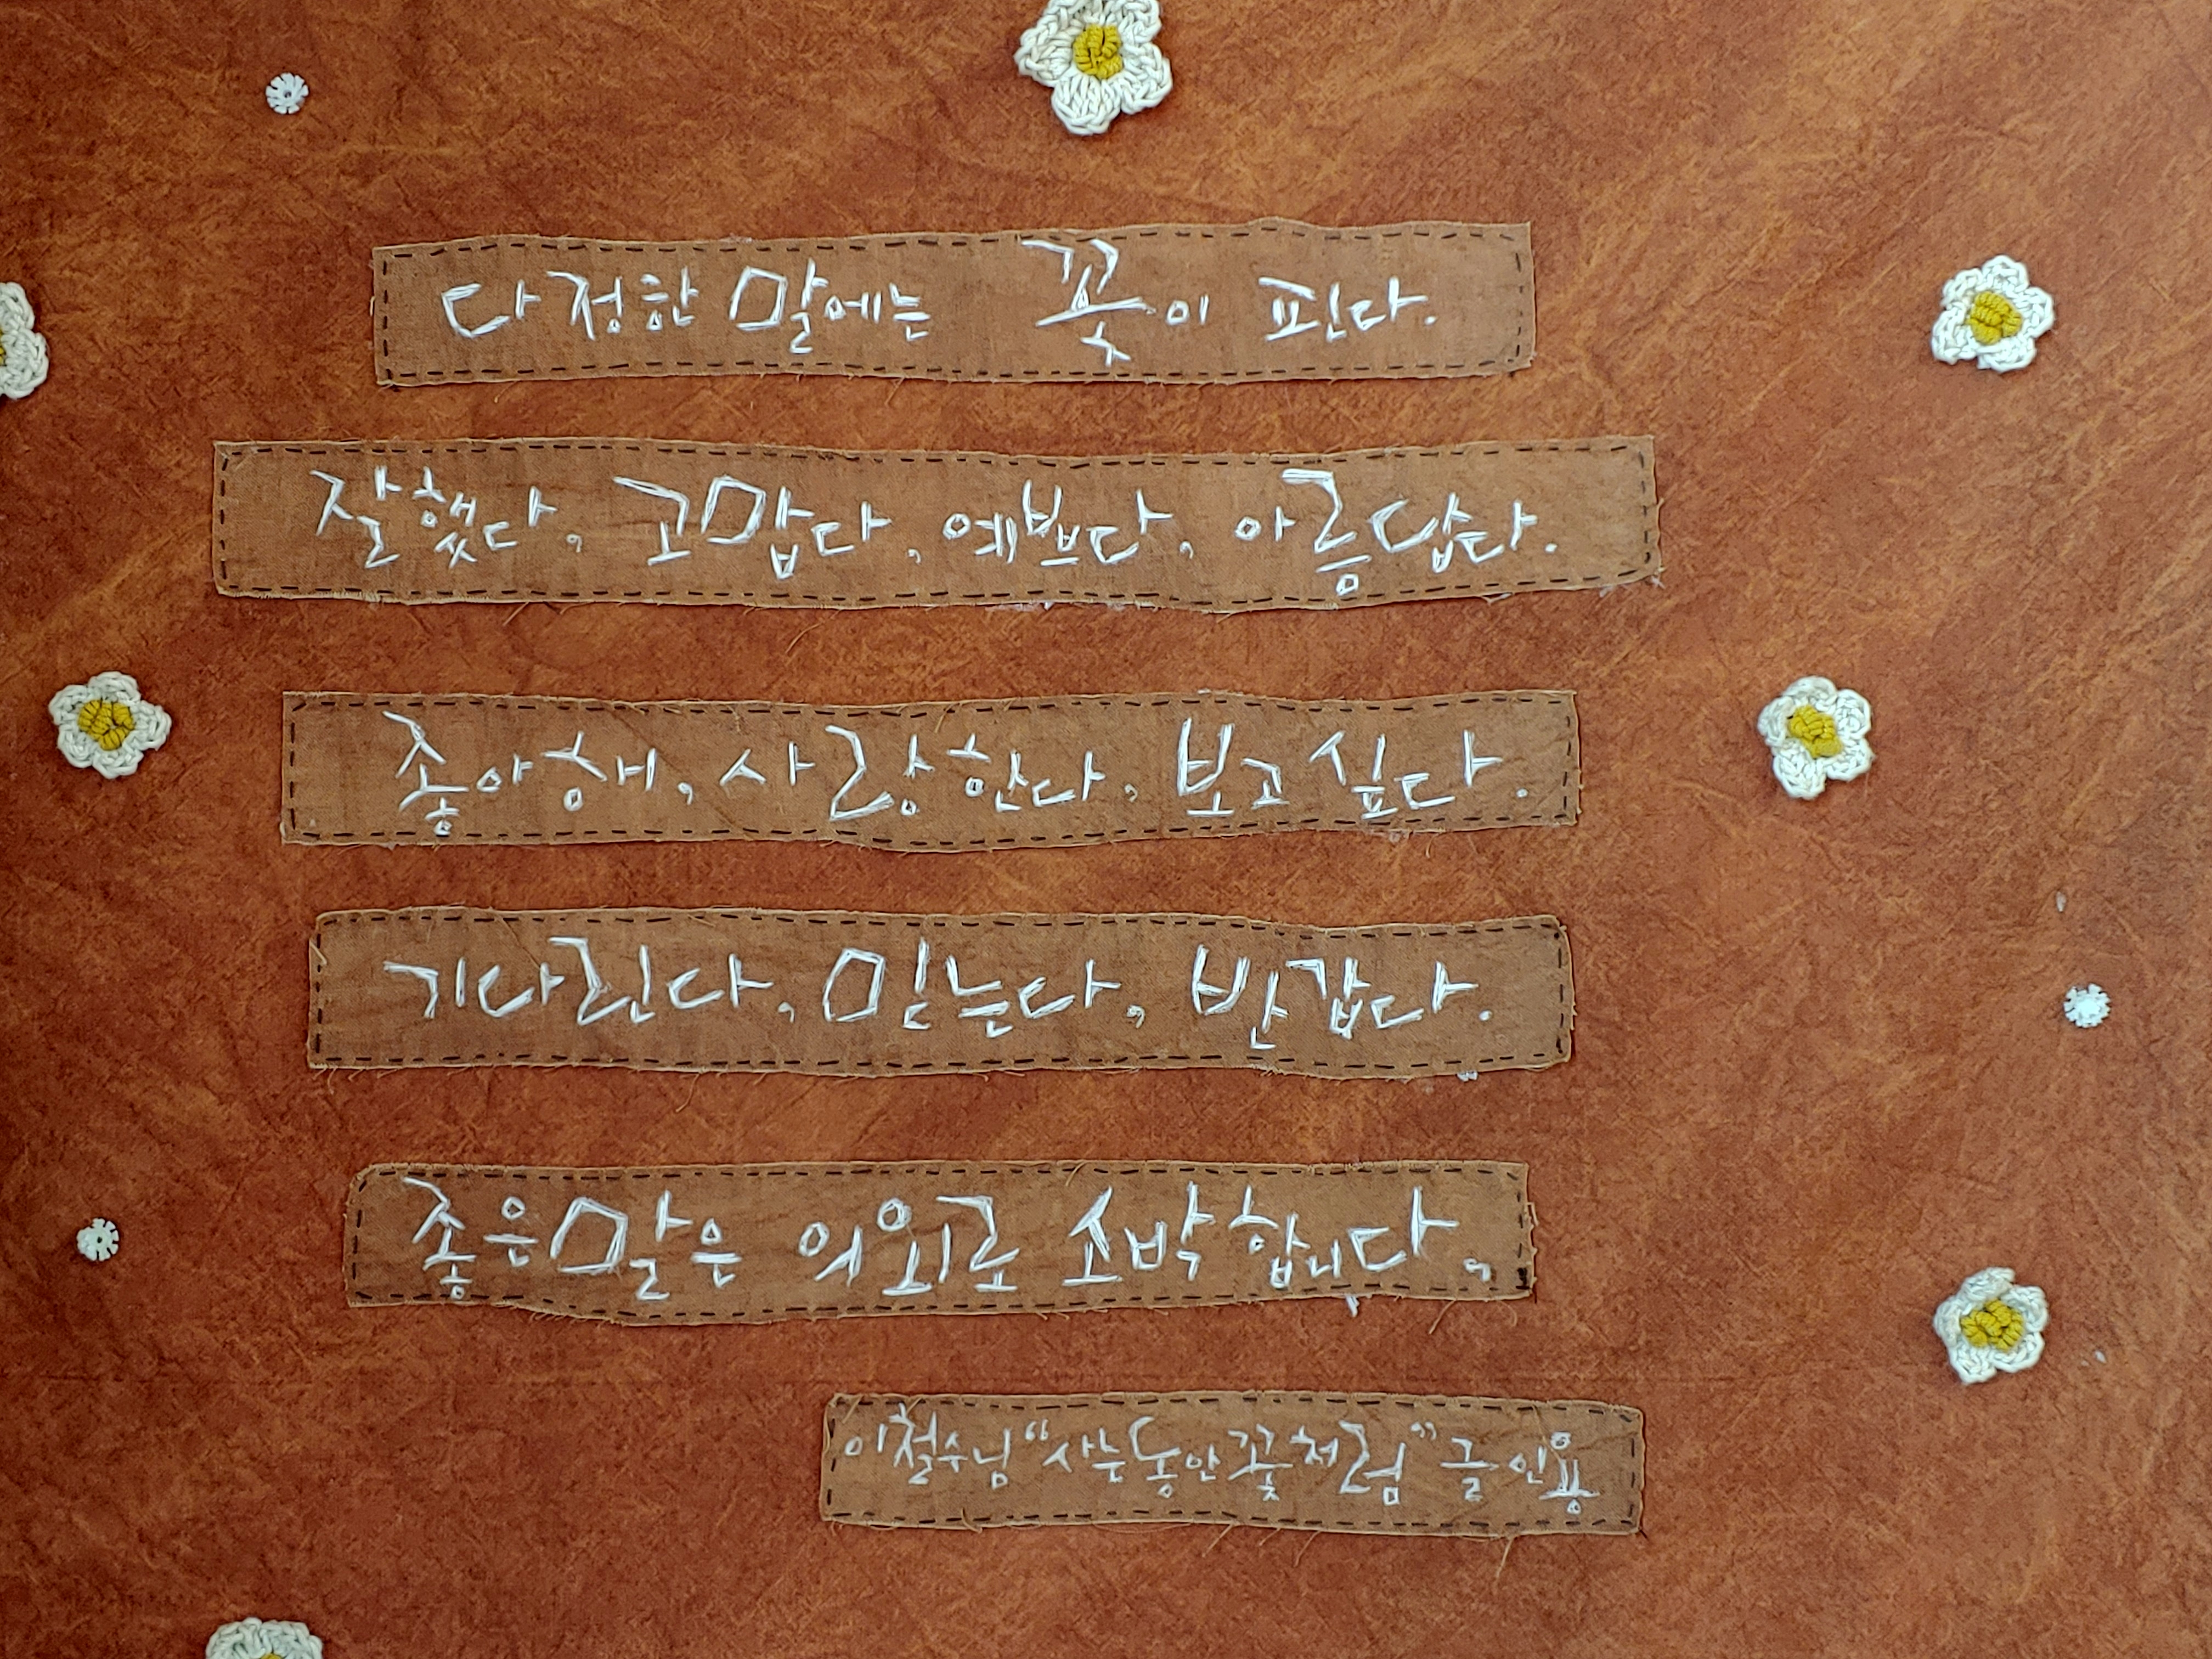 다정한 말에는 꽃이 핀다.
잘했다, 고맙다, 예쁘다, 아름답다.
좋아해, 사랑한다, 보고싶다.
기다린다, 믿는다, 반갑다.
좋은말은 의외로 소박합니다.
이철수님 "사는동안 꽃처럼" 글 인용